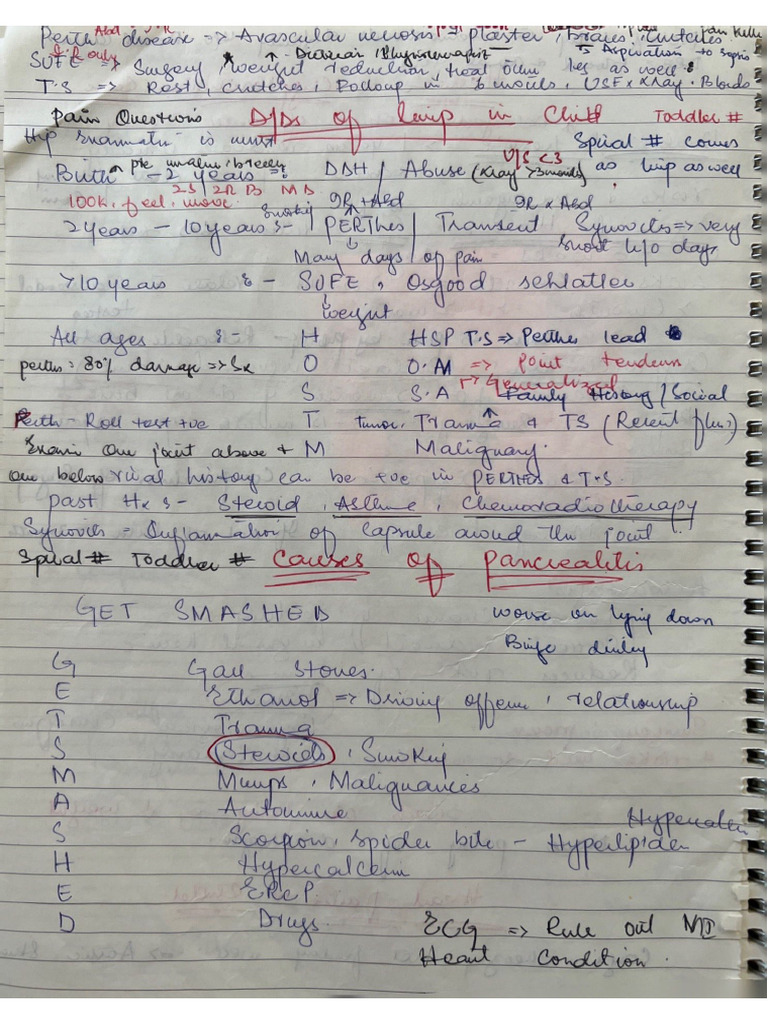 Perth disease => Avascular necrosis => plaster, braces, crutches
SUFE => Surgery, weight reduction, treat other leg as well
Dietician / Physiotherapist
Aspiration
T.S => Rest, crutches, Follow up in 6 months, USE, Xray, Bloods
Pain Questions D/Ds of limp in Child Toddler #
Hip Examination is must Spiral # comes
as limp as well
U/S <3
Birth - 2 years DDH / Abuse (Xray >3 months)
100k, feel, move
2 years - 10 years :- PERTHES / Transient Synovitis => very
short h/o days
Smoking
Many days of pain
>10 years :- SUFE, Osgood schlatter
weight
All ages :- H HSP T.S => Perthes lead
perthes : 80% damage => Sx O O.M => point tenderns
S S.A Generalized Family History / Social
Perth - Roll test +ve T tumor, Trauma & TS (Recent flu)
Exam One joint above + M Malignancy.
one below viral history can be +ve in PERTHES & T.S.
past Hx :- Steroid, Asthma, Chemoradiotherapy
Synovits = Inflammation of capsule around the joint
Spiral # Toddler # Causes of Pancreatitis
GET SMASHED worse on lying down
Binge
G Gall stones.
E Ethanol => Driving offence, relationship
T Trauma
S Steroids, Smoking
M Mumps, Malignances
A Autoimmune
S Scorpion, spider bite - Hyperlipiden
H Hypercalcem
E ERCP
D Drugs. ECG => Rule out MI
Heart Condition.